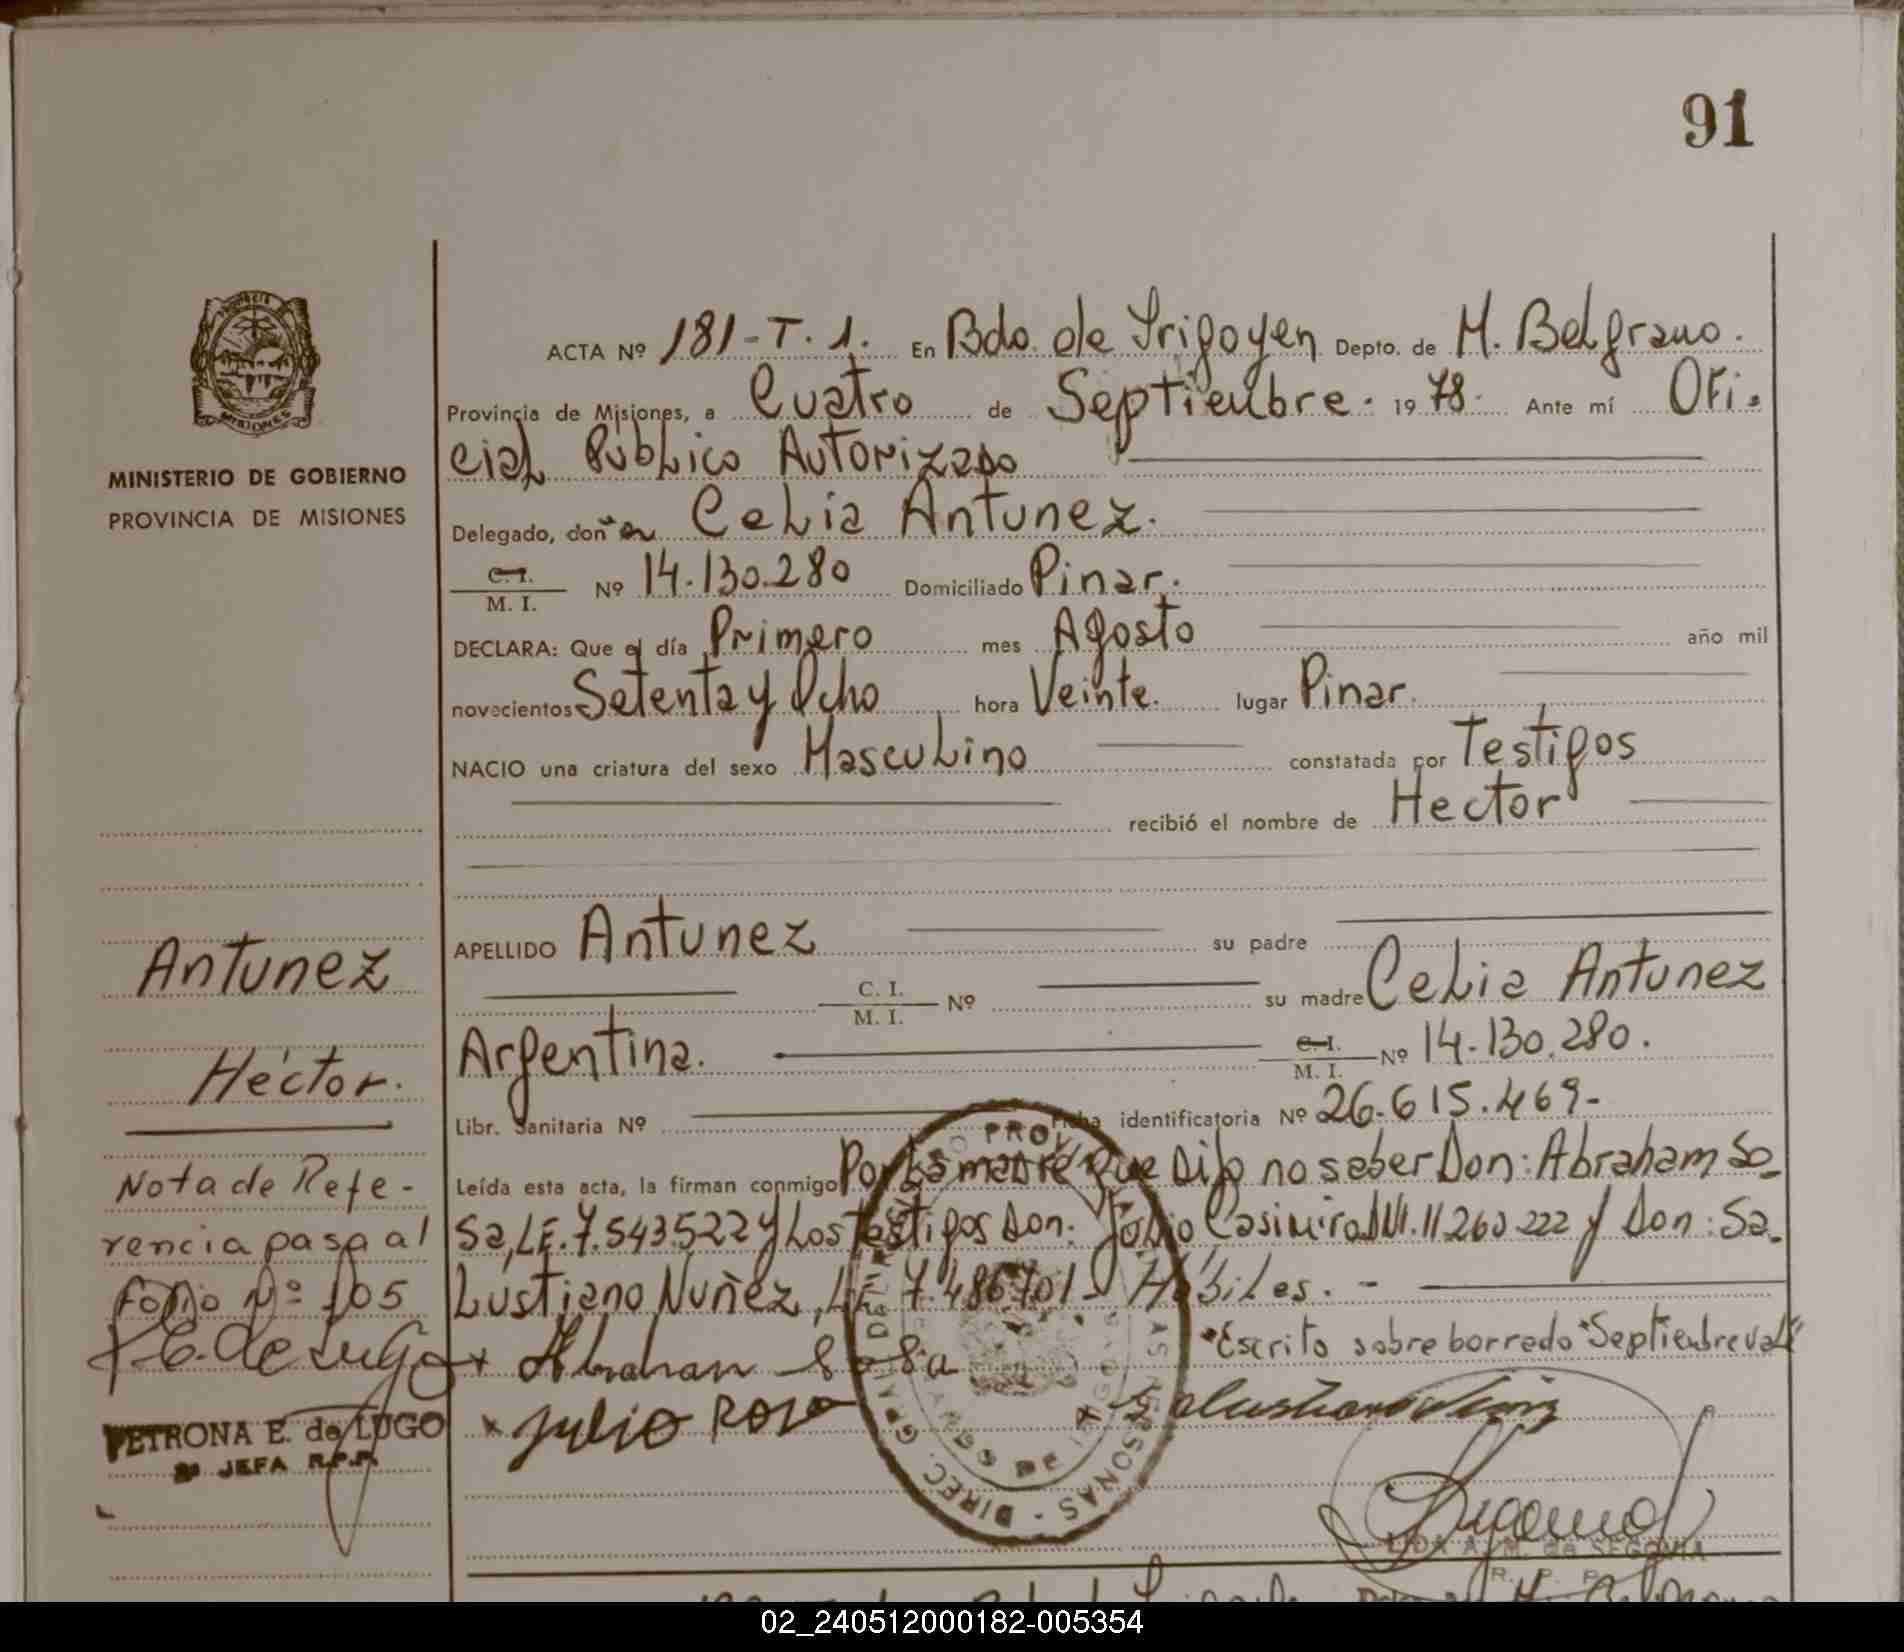 91
ACTA Nº 181-T. 1. En Bdo. de Irigoyen Depto. de M. Belgrano.
Provincia de Misiones, a Cuatro de Septiembre. 1978. Ante mí Ofi-
cial Público Autorizado
Delegado, doña Celia Antunez.
C. I.
M. I. Nº 14.130.280 Domiciliado Pinar.
DECLARA: Que el día Primero mes Agosto año mil
novecientos Setenta y Ocho hora Veinte. lugar Pinar.
NACIO una criatura del sexo Masculino constatada por Testigos
recibió el nombre de Hector
APELLIDO Antunez su padre
C. I.
M. I. Nº su madre Celia Antunez
Argentina. C. I.
M. I. Nº 14.130.280.
Libr. Sanitaria Nº Ficha identificatoria Nº 26.615.469-
Leída esta acta, la firman conmigo Por La madre que Dijo no saber Don: Abraham So-
sa, LE. 7.543.522 y Los Testigos Don: Julio Casimiro 11.260.222 y Don: Sa-
Lustiano Nuñez, LE 7.486.701- Hábiles. -
"Escrito sobre borrado "Septiembre vale"
x Abrahan Sosa
x Julio Rosa
LIDA A. V. M. de SEGOVIA
R. P. P.
MISIONES
MINISTERIO DE GOBIERNO
PROVINCIA DE MISIONES
Antunez
Héctor.
Nota de Refe-
rencia pasa al
Folio Nº 105
P. E. de Lugo
PETRONA E. de LUGO
2º JEFA R.P.P.
02_240512000182-005354